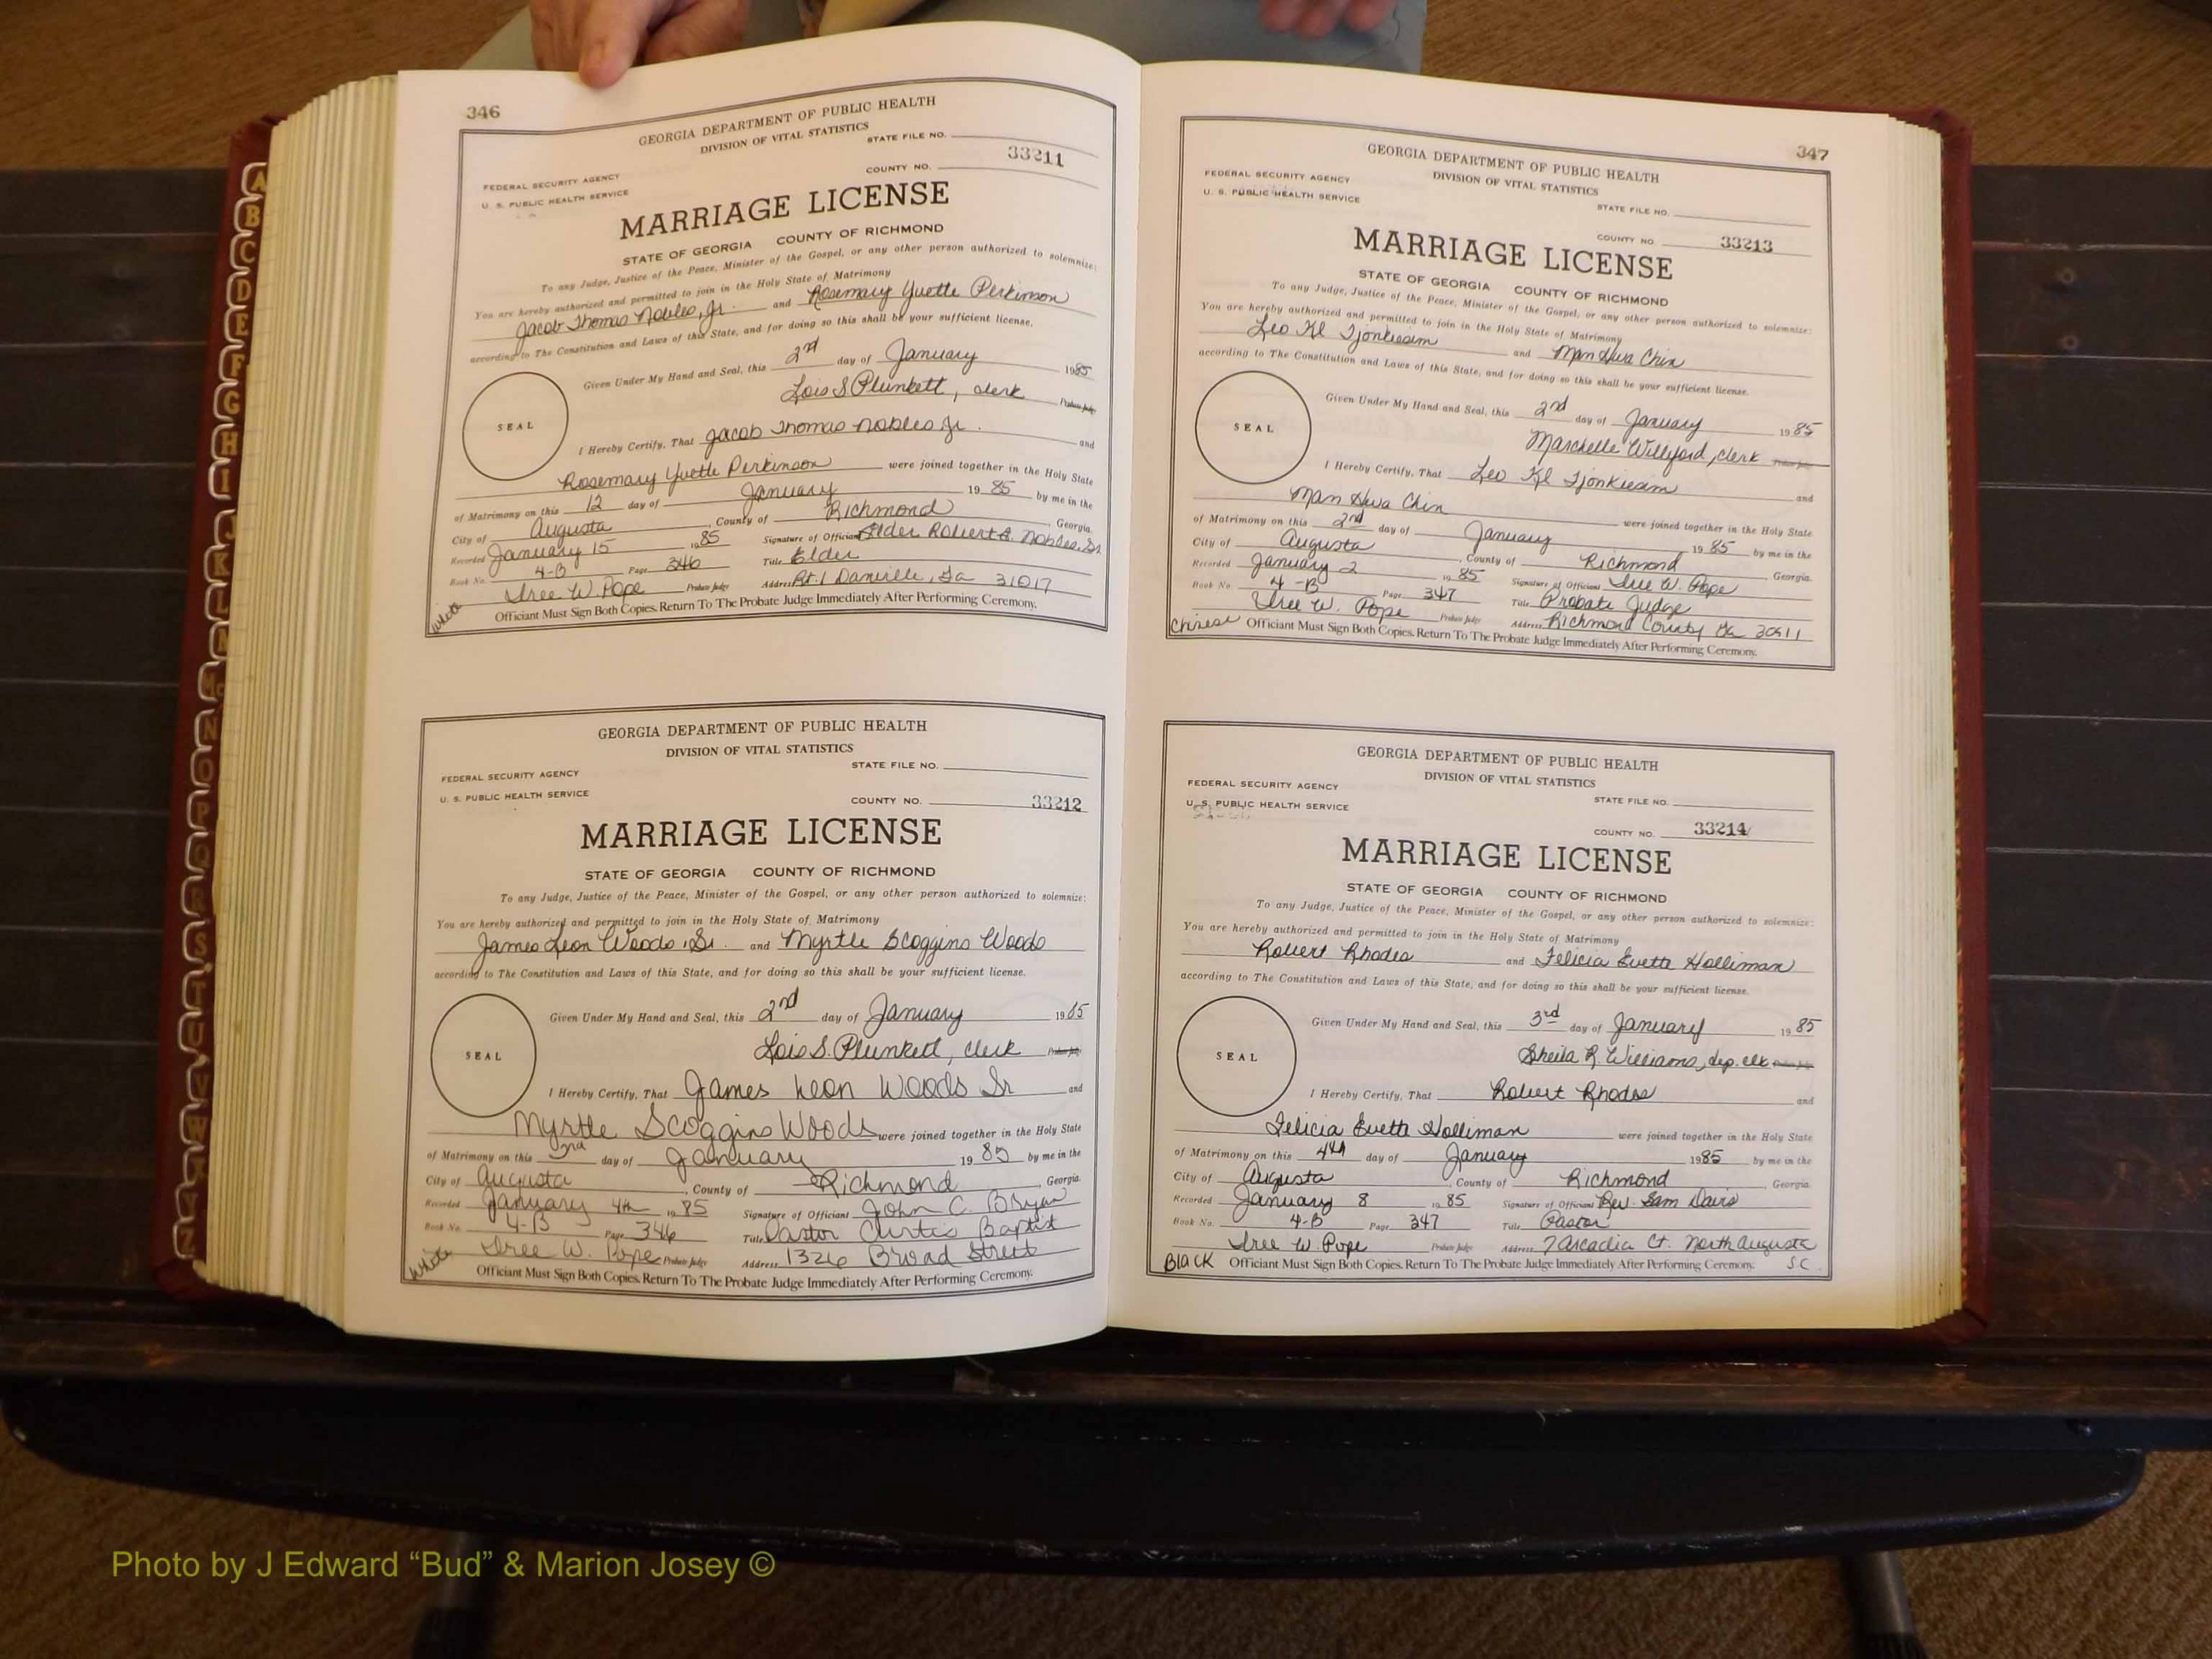 346
GEORGIA DEPARTMENT OF PUBLIC HEALTH
DIVISION OF VITAL STATISTICS
STATE FILE NO.
33211
COUNTY NO.
FEDERAL SECURITY AGENCY
U. S. PUBLIC HEALTH SERVICE
MARRIAGE LICENSE
STATE OF GEORGIA COUNTY OF RICHMOND
To any Judge, Justice of the Peace, Minister of the Gospel, or any other person authorized to solemnize:
You are hereby authorized and permitted to join in the Holy State of Matrimony
Jacob Thomas Nobles, Jr. and Rosemary Yvette Perkinson
according to The Constitution and Laws of this State, and for doing so this shall be your sufficient license.
Given Under My Hand and Seal, this 2nd day of January 1985
Lois S Plunkett, clerk Probate Judge
SEAL
I Hereby Certify, That Jacob Thomas Nobles Jr. and
Rosemary Yvette Perkinson were joined together in the Holy State
of Matrimony on this 12 day of January 19 85 by me in the
City of Augusta, County of Richmond, Georgia.
Recorded January 15 1985 Signature of Officiant Elder Robert E. Nobles, Sr.
Book No. 4-B Page 346 Title Elder
Iree W. Pope Probate Judge Address Rt. 1 Danville, Ga 31017
White Officiant Must Sign Both Copies. Return To The Probate Judge Immediately After Performing Ceremony.
GEORGIA DEPARTMENT OF PUBLIC HEALTH
DIVISION OF VITAL STATISTICS
STATE FILE NO.
FEDERAL SECURITY AGENCY
U. S. PUBLIC HEALTH SERVICE
COUNTY NO. 33212
MARRIAGE LICENSE
STATE OF GEORGIA COUNTY OF RICHMOND
To any Judge, Justice of the Peace, Minister of the Gospel, or any other person authorized to solemnize:
You are hereby authorized and permitted to join in the Holy State of Matrimony
James Leon Woods, Sr. and Myrtle Scoggins Woods
according to The Constitution and Laws of this State, and for doing so this shall be your sufficient license.
Given Under My Hand and Seal, this 2nd day of January 1985
Lois S. Plunkett, clerk Probate Judge
SEAL
I Hereby Certify, That James Leon Woods Sr and
Myrtle Scoggins Woods were joined together in the Holy State
of Matrimony on this day of January 19 85 by me in the
City of Augusta, County of Richmond, Georgia.
Recorded January 4th 1985 Signature of Officiant John C. Bryan
Book No. 4-B Page 346 Title Pastor Curtis Baptist
Iree W. Pope Probate Judge Address 1326 Broad Street
White Officiant Must Sign Both Copies. Return To The Probate Judge Immediately After Performing Ceremony.
347
GEORGIA DEPARTMENT OF PUBLIC HEALTH
DIVISION OF VITAL STATISTICS
FEDERAL SECURITY AGENCY
U. S. PUBLIC HEALTH SERVICE
STATE FILE NO.
COUNTY NO. 33213
MARRIAGE LICENSE
STATE OF GEORGIA COUNTY OF RICHMOND
To any Judge, Justice of the Peace, Minister of the Gospel, or any other person authorized to solemnize:
You are hereby authorized and permitted to join in the Holy State of Matrimony
Leo Kl Tjonkiesim and Man Hwa Chin
according to The Constitution and Laws of this State, and for doing so this shall be your sufficient license.
Given Under My Hand and Seal, this 2nd day of January 19 85
Marchelle Williford, clerk Probate Judge
SEAL
I Hereby Certify, That Leo Kl and
Man Hwa Chin were joined together in the Holy State
of Matrimony on this 2nd day of January 19 85 by me in the
City of Augusta, County of Richmond, Georgia.
Recorded January 2 1985 Signature of Officiant Iree W. Pope
Book No. 4-B Page 347 Title Probate Judge
Iree W. Pope Probate Judge Address Richmond County Ga 30911
Chinese Officiant Must Sign Both Copies. Return To The Probate Judge Immediately After Performing Ceremony.
GEORGIA DEPARTMENT OF PUBLIC HEALTH
DIVISION OF VITAL STATISTICS
FEDERAL SECURITY AGENCY
U. S. PUBLIC HEALTH SERVICE
STATE FILE NO.
COUNTY NO. 33214
MARRIAGE LICENSE
STATE OF GEORGIA COUNTY OF RICHMOND
To any Judge, Justice of the Peace, Minister of the Gospel, or any other person authorized to solemnize:
You are hereby authorized and permitted to join in the Holy State of Matrimony
Robert Rhodes and Felicia Evette Holliman
according to The Constitution and Laws of this State, and for doing so this shall be your sufficient license.
Given Under My Hand and Seal, this 3rd day of January 19 85
Sheila R. Williams, dep. clk Probate Judge
SEAL
I Hereby Certify, That Robert Rhodes and
Felicia Evette Holliman were joined together in the Holy State
of Matrimony on this 4th day of January 1985 by me in the
City of Augusta, County of Richmond, Georgia.
Recorded January 8 1985 Signature of Officiant Rev. Sam Davis
Book No. 4-B Page 347 Title Pastor
Iree W. Pope Probate Judge Address 7 Arcadia Ct. North Augusta
BLACK Officiant Must Sign Both Copies. Return To The Probate Judge Immediately After Performing Ceremony. SC
A
B
C
D
E
F
G
H
I
J
K
L
M
Mc
N
O
P
Q
R
S
T
U
V
W
Z
Photo by J Edward “Bud” & Marion Josey ©